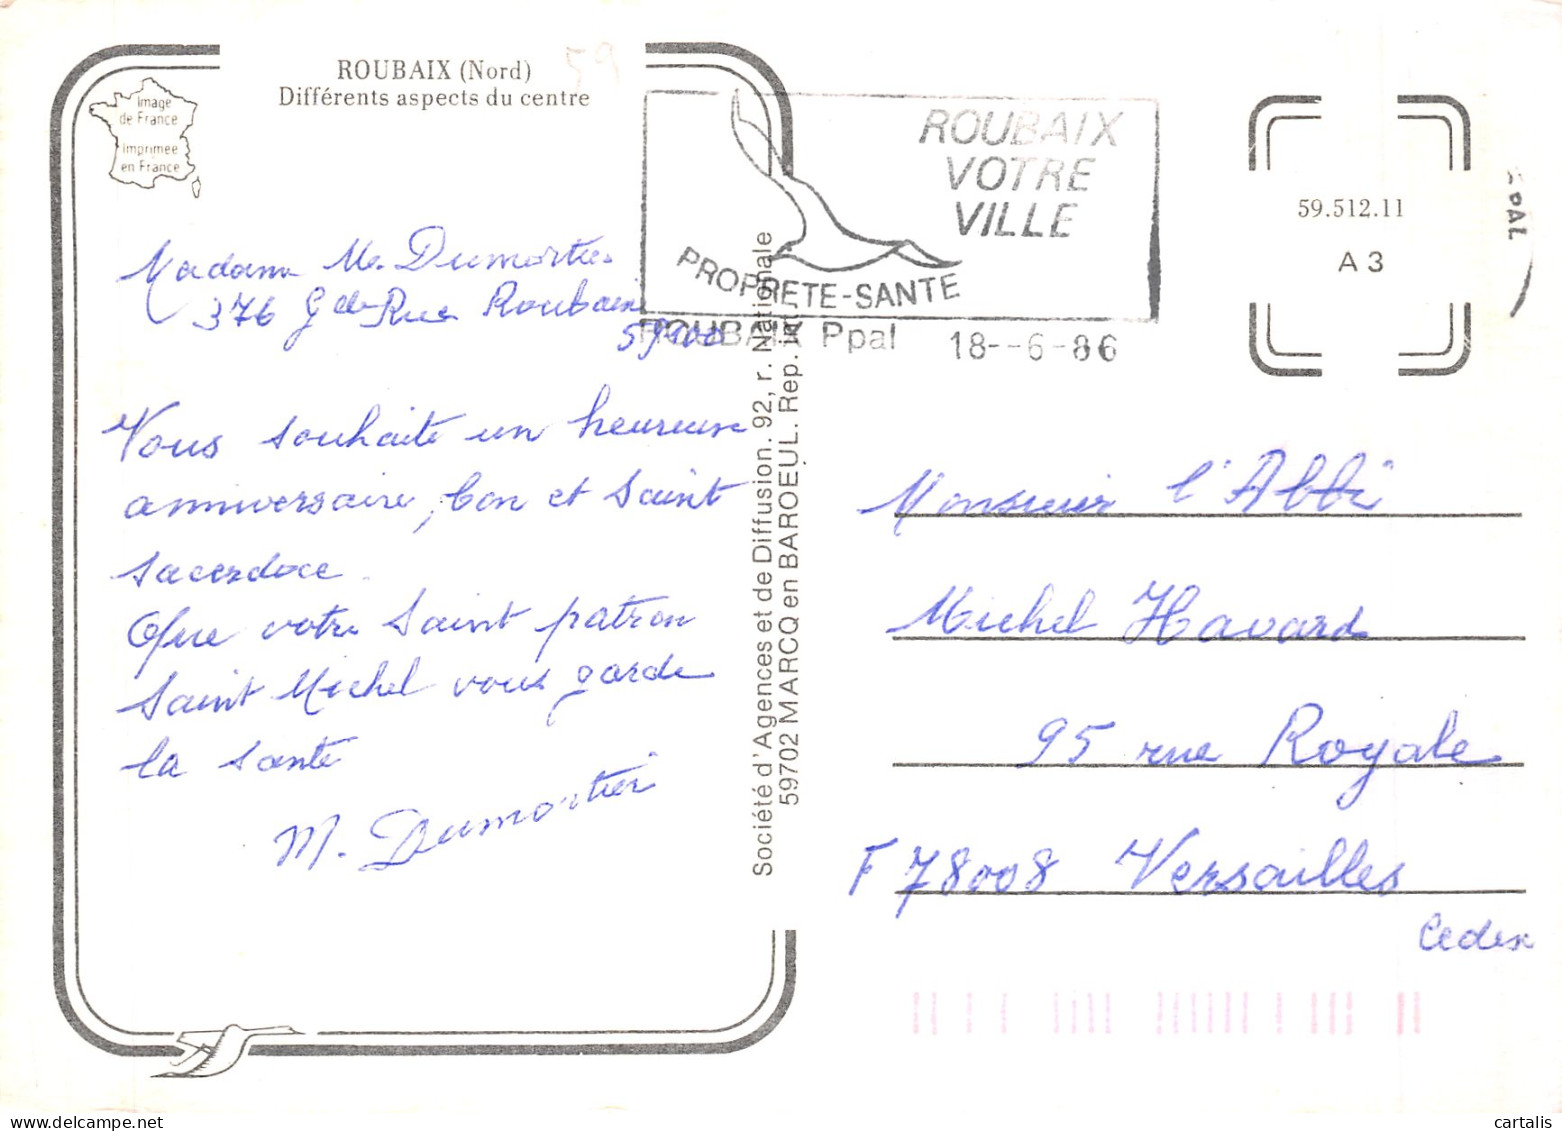 ROUBAIX (Nord)
Différents aspects du centre
59
Image
de France
Imprimée
en France
ROUBAIX
VOTRE
VILLE
PROPRETE-SANTE
ROUBAIX Ppal 18--6-86
PPAL
59.512.11
A 3
Madame M. Dumortier
376 Gde Rue Roubaix
59100
Vous souhaite un heureuse
anniversaire, bon et saint
sacerdoce.
Que votre Saint patron
Saint Michel vous garde
la santé
M. Dumortier
Société d'Agences et de Diffusion. 92, r. Nationale
59702 MARCQ en BAROEUL. Rep. int.
Monsieur l'Abbé
Michel Havard
95 rue Royale
F 78008 Versailles
Cedex
cartalis